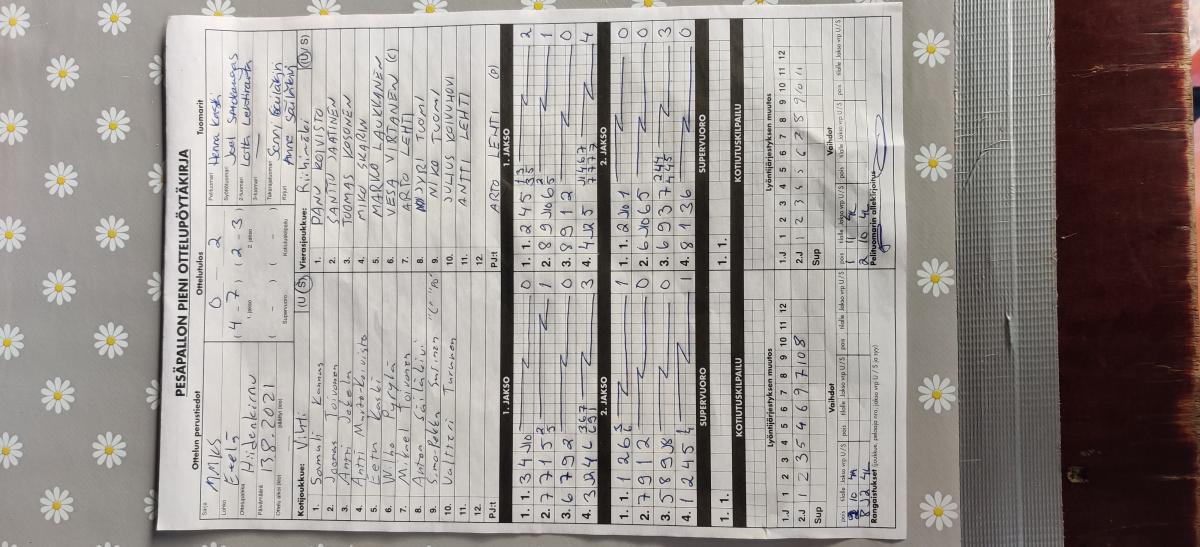 PESÄPALLON PIENI OTTELUPÖYTÄKIRJA
Ottelun perustiedot
Ottelutulos
Tuomarit
Sarja MMKS
0 - 2
Pelituomari Henna Kaski
Lohko Etelä
(4 - 7) (2 - 3)
1. jakso 2. jakso
Syöttötuomari Joel
2-tuomari Lotta Lehtiranta
Ottelupaikka Hiidenkirnu
3-tuomari
Päivämäärä 13.8.2021
( - ) ( - )
Supervuoro Kotiutuskilpailu
Takarajatuomari Sanni
Ottelu alkoi (klo) päättyi (klo)
Kirjuri Anne
Kotijoukkue: Vihti (U/S)
Vierasjoukkue: Riihimäki (U/S)
1. Samuli Kannus
1. PANU KOIVISTO
2. Joonas Toivonen
2. SANTTU
3. Antti Jokela
3. TUOMAS KOSONEN
4. Antti
4. MIKU SKAIN
5. Eetu Kaski
5. MARKO LAUKKANEN
6. Wilho Pyrylä
6. VESA VIRTANEN (C)
7. Mikael Toivonen
7. ARTO LEHTI
8. Anton
8. JYRI TUOMI
9. Simo-Pekka Salinen "C" "PJ"
9. NIKO TUOMI
10. Valtteri Turunen
10. JULIUS KOIVUHOVI
11.
11. ANTTI LEHTI
12.
12.
PJ:t
PJ:t ARTO LEHTI (P)
1. JAKSO
1. JAKSO
1. 1. 3 4 0
1. 1. 2 4 5 2
2. 7 7 1 5 1
2. 8 9 6 1
3. 6 7 9 2 0
3. 8 9 1 2 0
4. 3 4 6 3
4. 4 5 4
2. JAKSO
2. JAKSO
1. 1. 1 2 6 1
1. 1. 2 1 0
2. 7 9 1 2 0
2. 6 6 5 0
3. 5 8 9 0
3. 6 9 3 7 3
4. 1 2 4 5 1
4. 8 1 3 6 0
SUPERVUORO
SUPERVUORO
1. 1.
1. 1.
KOTIUTUSKILPAILU
KOTIUTUSKILPAILU
Lyöntijärjestyksen muutos
Lyöntijärjestyksen muutos
1.J 1 2 3 4 5 6 7 8 9 10 11 12
1.J 1 2 3 4 5 6 7 8 9 10 11 12
2.J 1 2 3 5 4 6 9 7 10 8
2.J 1 2 3 4 5 6 7 8 9 10 11
Sup
Sup
Vaihdot
Vaihdot
pois tilalle Jakso vrp U/S pois tilalle Jakso vrp U/S
pois tilalle Jakso vrp U/S pois tilalle Jakso vrp U/S
Rangaistukset (joukkue, pelaaja nro, jakso vrp U/S ja syy)
Pelituomarin allekirjoitus